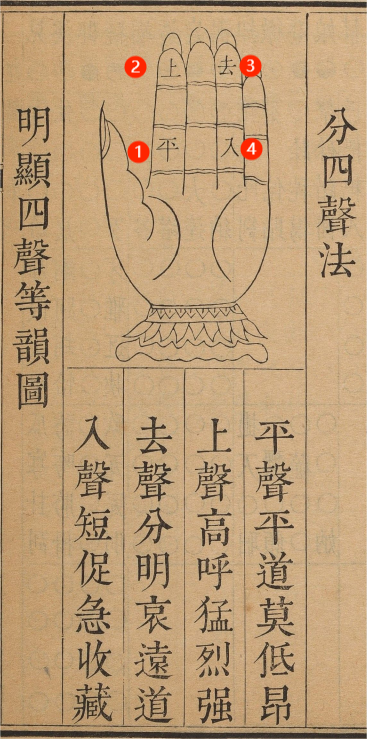 分四聲法
② 上
去 ③
① 平
入 ④
平聲平道莫低昂
上聲高呼猛烈强
去聲分明哀遠道
入聲短促急收藏
明顯四聲等韻圖